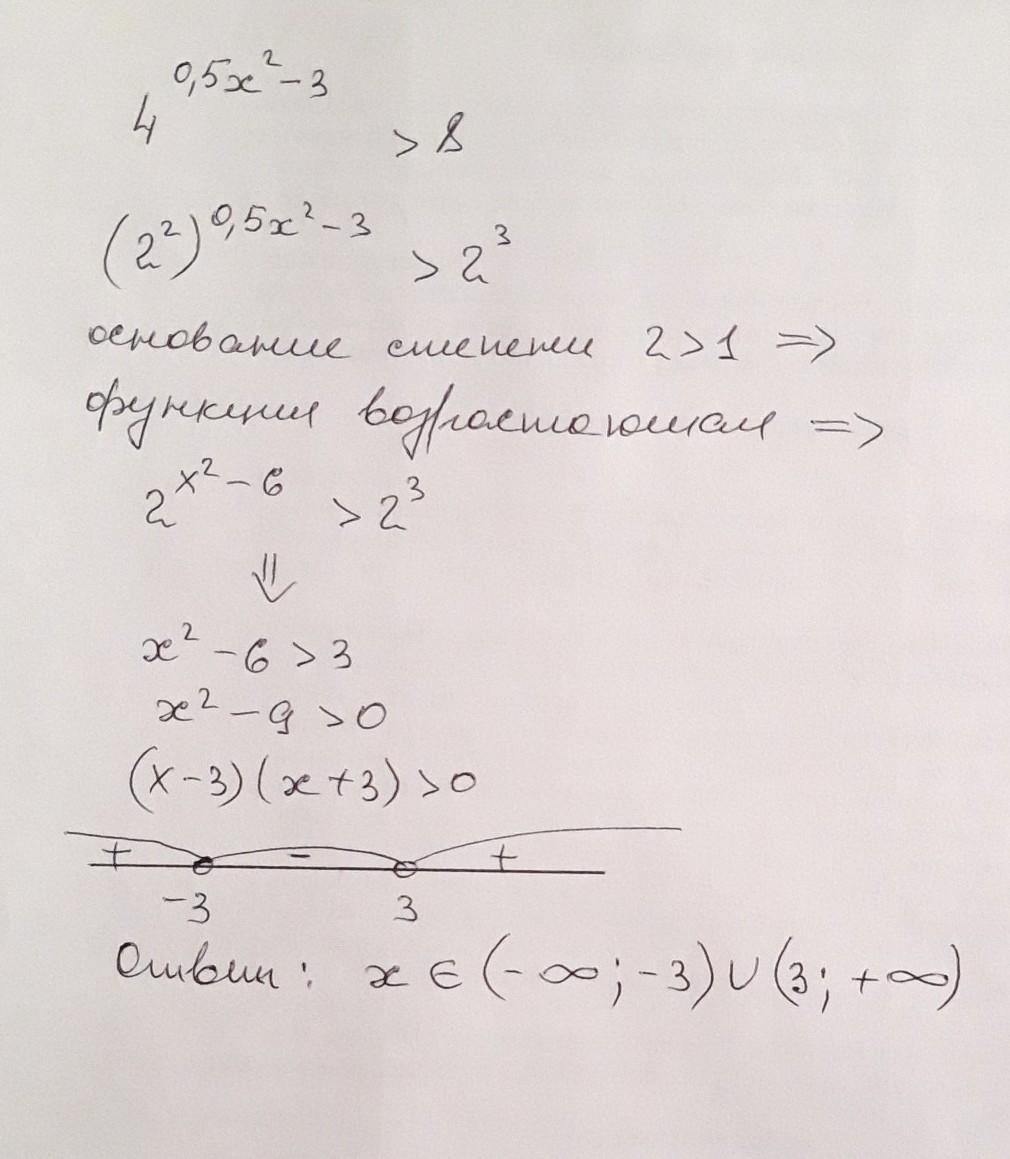 4^{0,5x^2-3} > 8
(2^2)^{0,5x^2-3} > 2^3
основание степени 2>1 =>
функция возрастающая =>
2^{x^2-6} > 2^3
⇓
x^2-6>3
x^2-9>0
(x-3)(x+3)>0
+ - +
-3 3
Ответ: x ∈ (-∞; -3) ∪ (3; +∞)